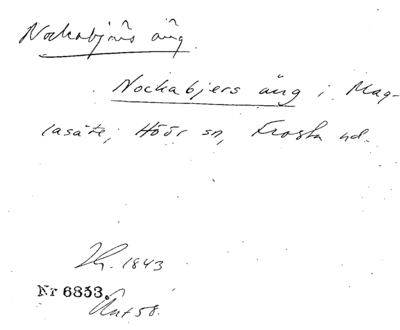 Nockabjärs äng.
Nockabjers äng i Mag-
lasäte, Höör sn, Frosta hd.
Th. 1843
Nr 6853.
Ant 58.